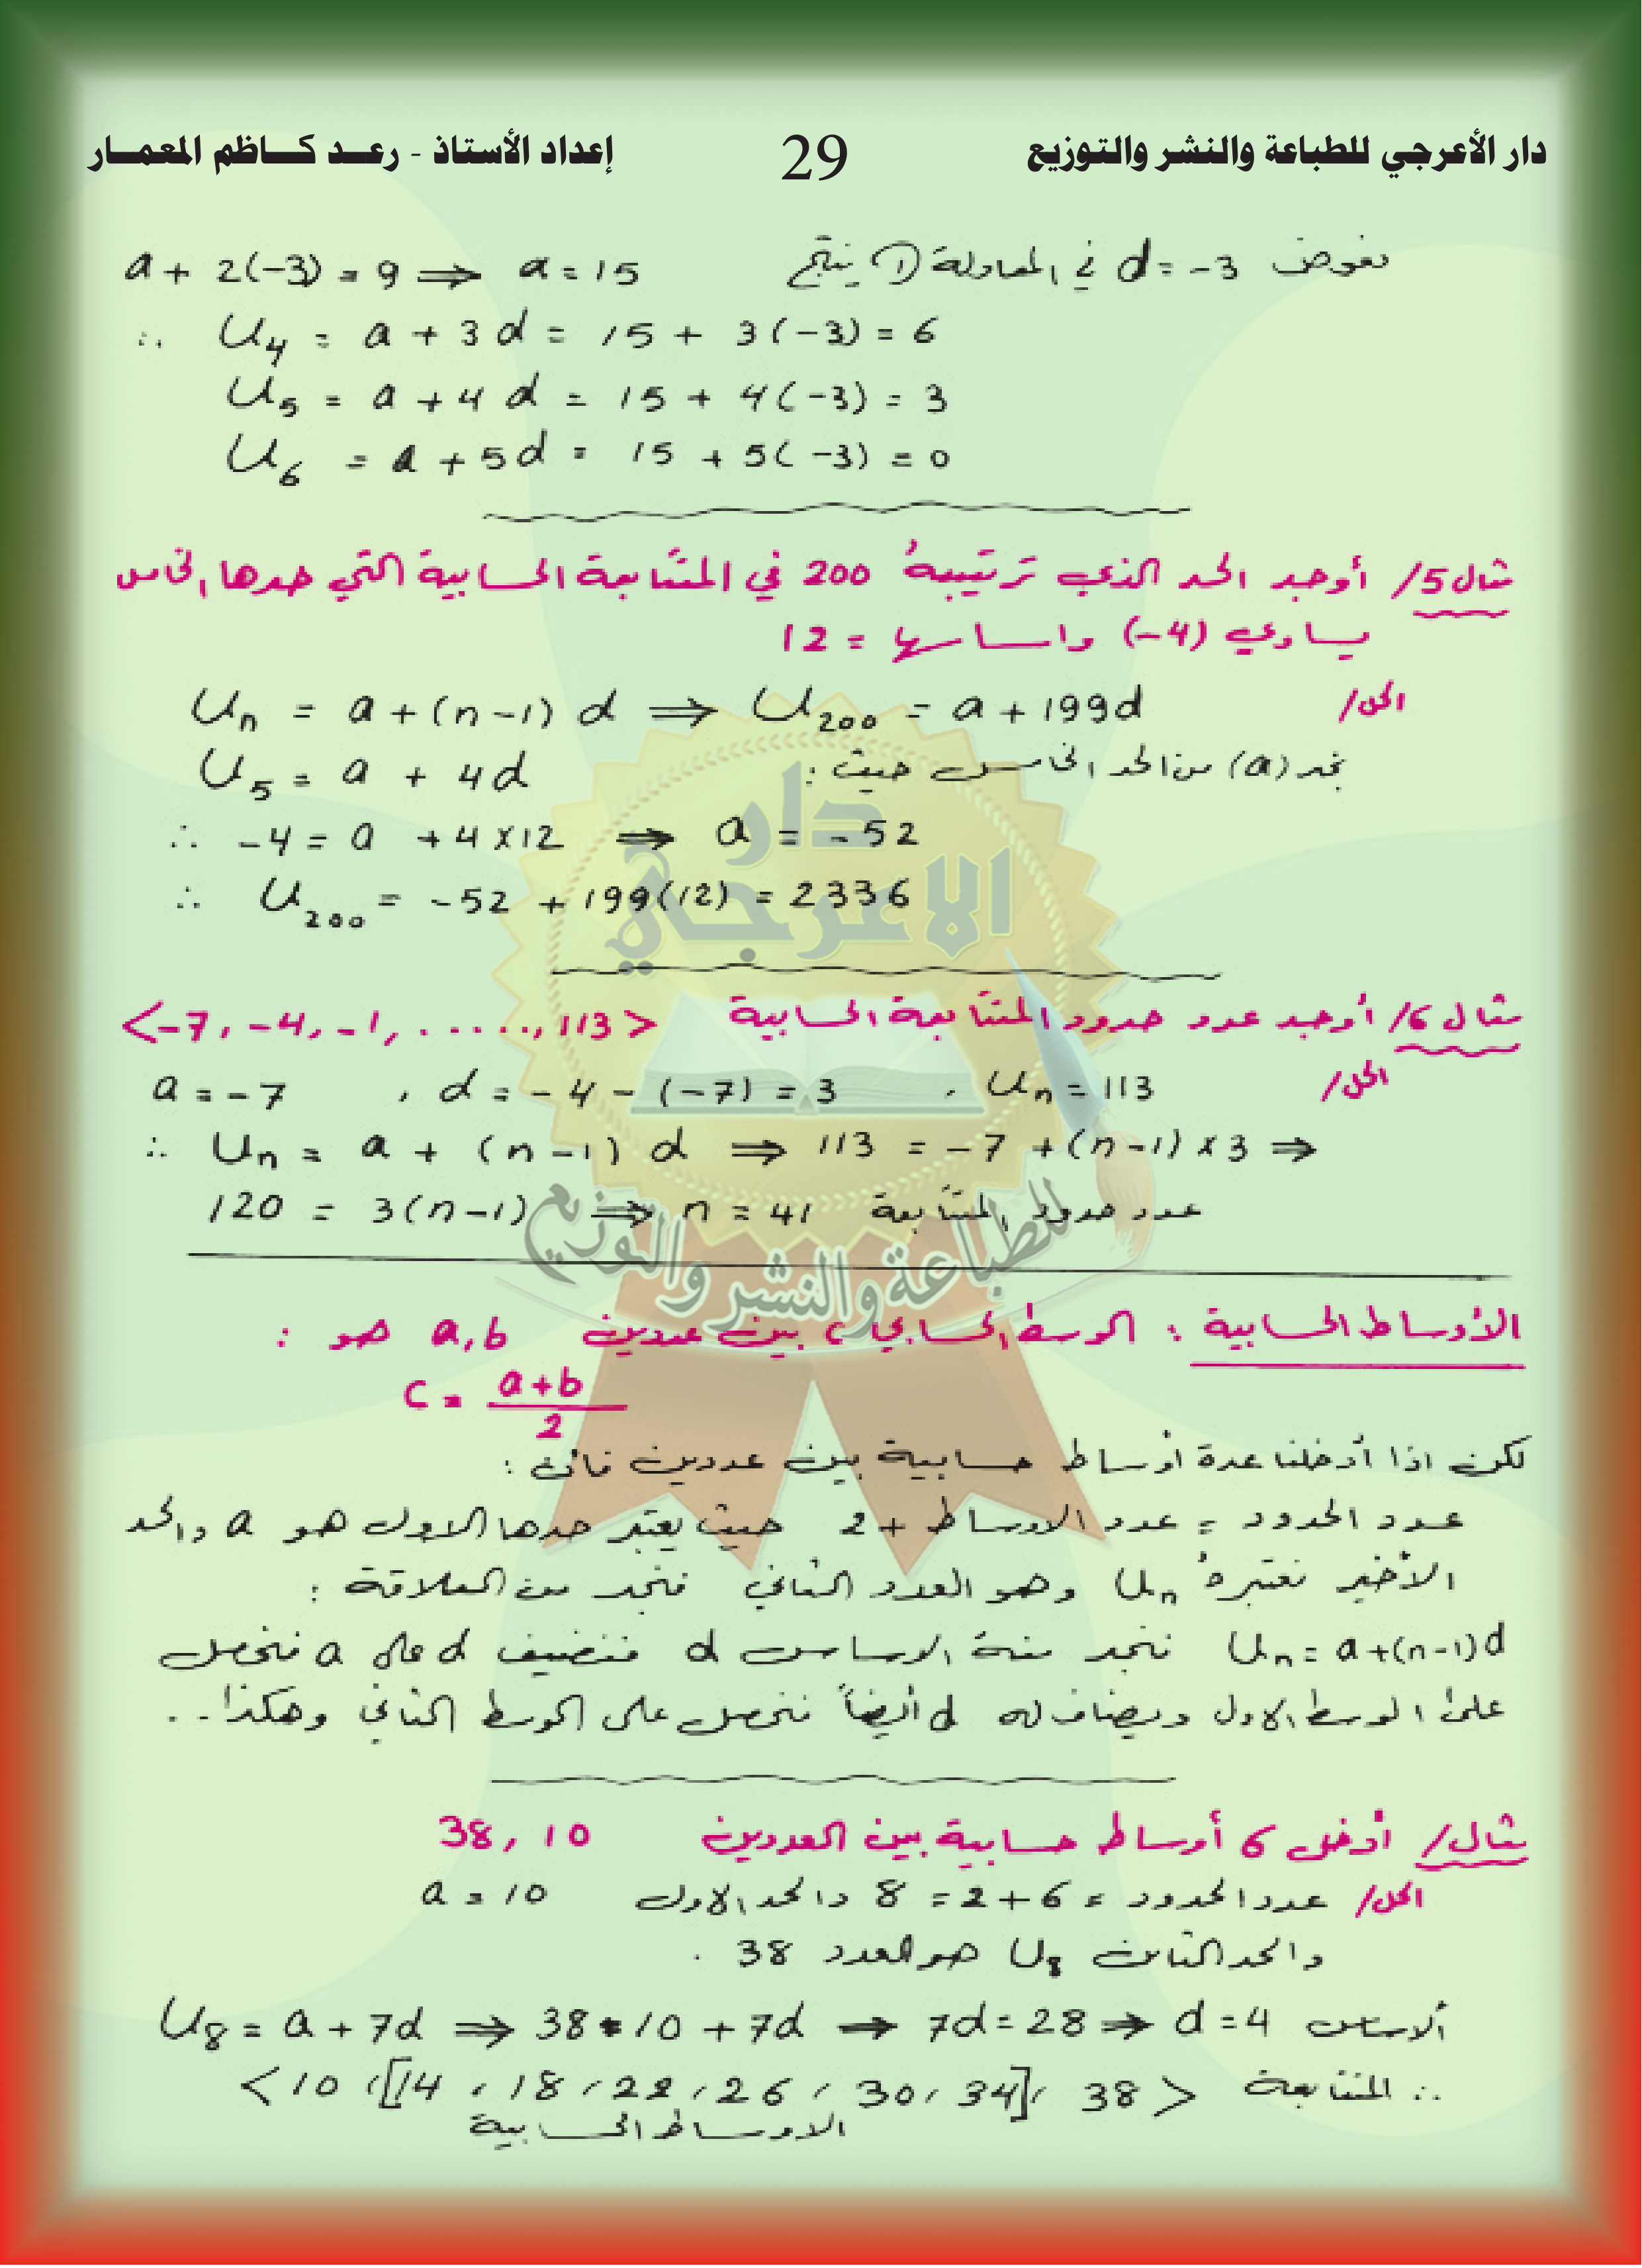 دار الأعرجي للطباعة والنشر والتوزيع 29 إعداد الأستاذ - رعد كاظم المعمار
نعوض d = -3 في المعادلة (1) ينتج a + 2(-3) = 9 ⇒ a = 15
∴ U₄ = a + 3d = 15 + 3(-3) = 6
U₅ = a + 4d = 15 + 4(-3) = 3
U₆ = a + 5d = 15 + 5(-3) = 0
مثال 5/ أوجد الحد الذي ترتيبهُ 200 في المتتابعة الحسابية التي حدها الخامس
يساوي (-4) واساسها = 12
الحل/ Uₙ = a + (n-1) d ⇒ U₂₀₀ = a + 199d
نجد (a) من الحد الخامس حيث : U₅ = a + 4d
∴ -4 = a + 4×12 ⇒ a = -52
∴ U₂₀₀ = -52 + 199(12) = 2336
مثال 6/ أوجد عدد حدود المتتابعة الحسابية <-7, -4, -1, ....., 113>
الحل/ a = -7 , d = -4 - (-7) = 3 , Uₙ = 113
∴ Uₙ = a + (n-1) d ⇒ 113 = -7 + (n-1) × 3 ⇒
120 = 3(n-1) ⇒ n = 41 عدد حدود المتتابعة
الأوساط الحسابية : الوسط الحسابي c بين عددين a, b هو :
c = (a+b)/2
لكن اذا أدخلنا عدة أوساط حسابية بين عددين فأن :
عدد الحدود = عدد الاوساط + 2 حيث يعتبر حدها الاول هو a والحد
الأخير نعتبرهُ Uₙ وهو العدد الثاني فنجد من العلاقة :
Uₙ = a + (n-1)d نجد منهُ الاساس d فنضيف d على a فنحصل
على الوسط الاول ويضاف له d أيضاً فنحصل على الوسط الثاني وهكذا ..
مثال/ أدخل 6 أوساط حسابية بين العددين 38, 10
الحل/ عدد الحدود = 6 + 2 = 8 والحد الاول a = 10
والحد الثامن U₈ هو العدد 38 .
U₈ = a + 7d ⇒ 38 = 10 + 7d ⇒ 7d = 28 ⇒ d = 4 الاساس
∴ المتتابعة <10 , [14 , 18 , 22 , 26 , 30 , 34] , 38>
الاوساط الحسابية
دار
الاعرجي
للطباعة والنشر والتوزيع